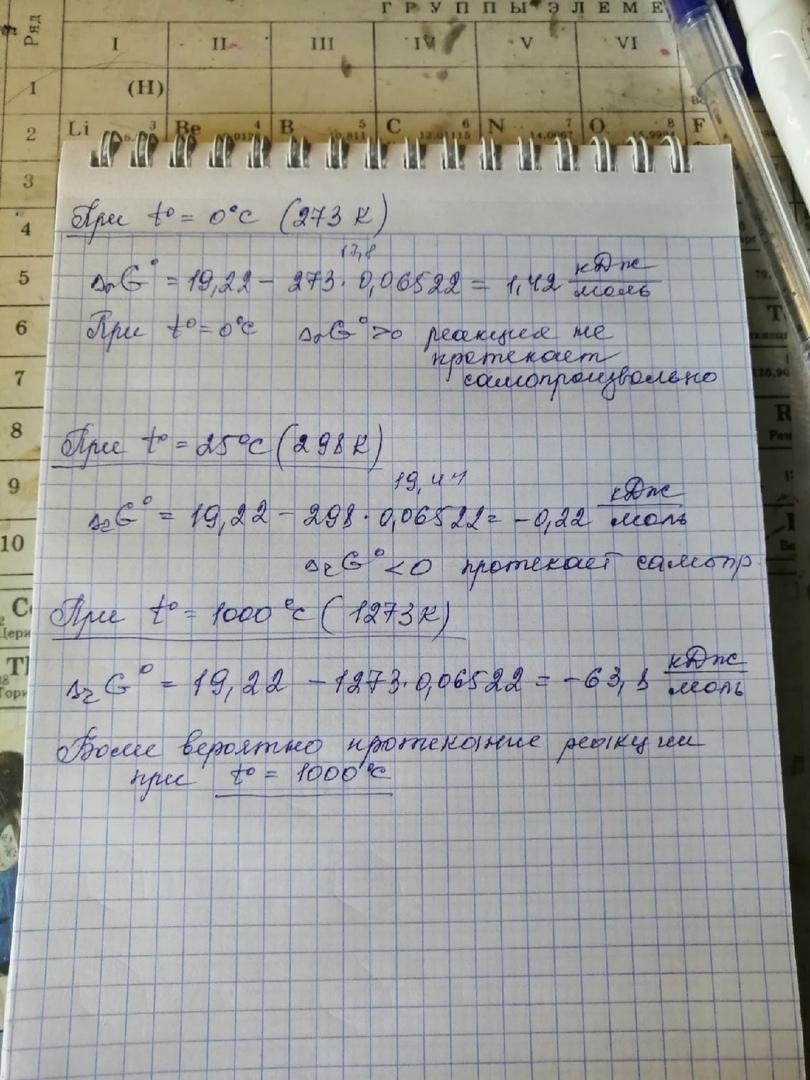 ГРУППЫ ЭЛЕМЕ
Ряд
I II III IV V VI
1 (H)
2 Li 3 Be 4 B 5 10,811 C 6 12,01115 N 7 14,0067 O 8 15,9994 F
3
4
5
6
7
8
9
10
При t° = 0°C (273 К)
17,8
ΔrG° = 19,22 – 273 · 0,06522 = 1,42 кДж/моль
При t° = 0°C ΔrG° > 0 реакция не
протекает
самопроизвольно
При t° = 25°C (298 К)
19,44
ΔrG° = 19,22 – 298 · 0,06522 = –0,22 кДж/моль
ΔrG° < 0 протекает самопр.
При t° = 1000°C (1273 К)
ΔrG° = 19,22 – 1273 · 0,06522 = –63,8 кДж/моль
Более вероятно протекание реакции
при t° = 1000°C